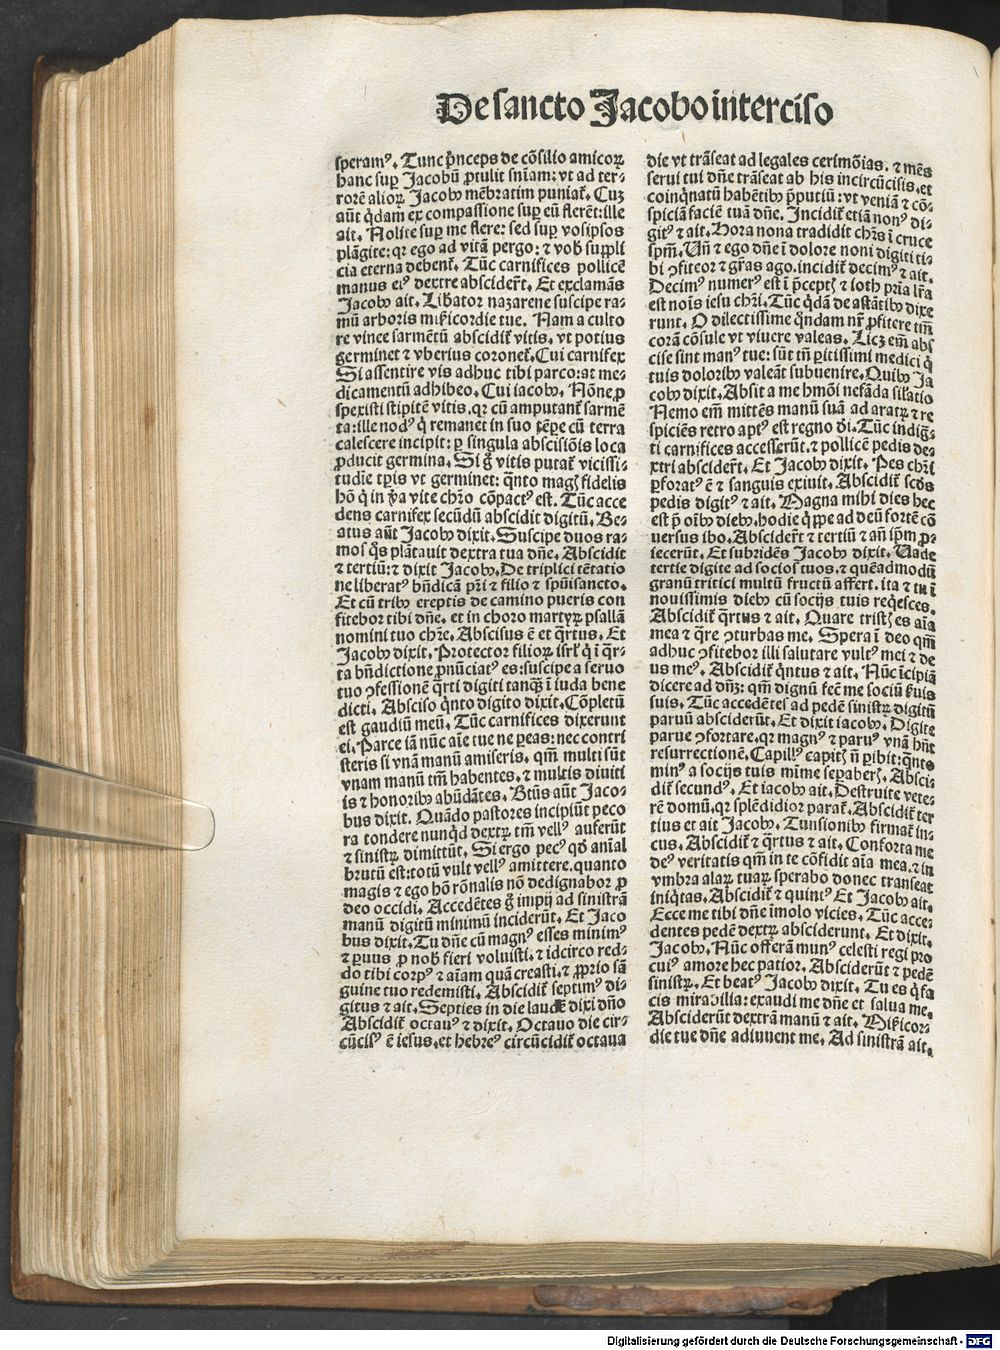 De sancto Jacobo interciso
speramꝰ. Tunc p̄nceps de cōsilio amicoꝝ
hanc sup̱ Jacobū ꝓtulit sn̄iam: vt ad ter-
rorē alioꝝ Jacobꝰ mēbratim puniat᷑. Cuꝫ
aūt q̄dam ex compassione sup̱ eū flerēt: ille
ait. Nolite sup̱ me flere: sed sup̱ vosipsos
plāgite: qꝛ ego ad vitā pergo: ⁊ vob̄ suppli
cia eterna debent᷑. Tūc carnifices pollicē
manus eiꝰ dextre absciderūt. Et exclamās
Jacobꝰ ait. Libator nazarene suscipe ra-
mū arboris mīcordie tue. Nam a culto
re vinee sarmētū abscidit᷑ vitis. vt potius
germinet ⁊ vberius coronet᷑. Cui carnifex
Si assentire vis adhuc tibi parco: at me-
dicamentū adhibeo. Cui iacobꝰ. Nōne ꝓ
spexisti stipitē vitis. qꝛ cū amputant᷑ sarmē
ta: ille nodꝰ q̇ remanet in suo tēꝑe cū terra
calescere incipit: ꝑ singula abscisiōis loca
ꝓducit germina. Si g̊ vitis putat᷑ vicissi-
tudīe tꝑis vt germinet: q̄nto magꝭ fidelis
hō q̇ in v̄a vite chr̄o cōpactꝰ est. Tūc acce
dens carnifex secūdū abscidit digitū. Be-
atus aūt Jacobꝰ dixit. Suscipe duos ra-
mos q̊s plātauit dextra tua dn̄e. Abscidit
⁊ tertiū: ⁊ dixit Jacobꝰ. De triplici tētatio
ne liberatꝰ bn̄dicā pr̄i ⁊ filio ⁊ sp̄uisancto.
Et cū tribꝰ ereptis de camino pueris con
fitebor tibi dn̄e. et in choro martyꝝ psallā
nomini tuo chr̄e. Abscisus ē et q̄rtus. Et
Jacobꝰ dixit. Protector filioꝝ isrl̄ q̇ ī q̄r-
ta bn̄dictione ꝓnūciatꝰ es: suscipe a seruo
tuo ꝯfessionē q̄rti digiti tanq̄ ī iuda bene
dicti. Absciso q̇nto digito dixit. Cōpletū
est gaudiū meū. Tūc carnifices dixerunt
ei. Parce iā nūc aīe tue ne ꝑeas: nec contri
steris si vnā manū amiseris. qm̄ multi sūt
vnam manū tm̄ habentes. ⁊ multis diuiti
is ⁊ honoribꝰ abūdātes. Bt̄us aūt Jaco-
bus dixit. Quādo pastores incipiūt peco
ra tondere nunq̄d dextꝝ tm̄ vellꝰ auferūt
⁊ sinistꝝ dimittūt. Si ergo pecꝰ qd̄ anīal
brutū est: totū vult vellꝰ amittere. quanto
magis ⁊ ego hō rōnalis nō dedignabor ꝓ
deo occidi. Accedētes g̊ impij ad sinistrā
manū digitū minimū inciderūt. Et Jaco
bus dixit. Tu dn̄e cū magnꝰ esses minimꝰ
⁊ ꝑuus ꝓ nob̄ fieri voluisti. ⁊ idcirco red-
do tibi corpꝰ ⁊ aīam quā creasti. ⁊ ꝓprio sā
guine tuo redemisti. Abscidit᷑ septimꝰ di-
gitus ⁊ ait. Septies in die laudē dixi dn̄o
Abscidit᷑ octauꝰ ⁊ dixit. Octauo die cir-
cūcisꝰ ē iesus. et hebreꝰ circūcidit᷑ octaua
die vt trāseat ad legales cerimōias. ⁊ mēs
serui tui dn̄e trāseat ab his incircūcisis. et
coinq̇natū habētibꝰ p̄putiū: vt veniā ⁊ cō-
spiciā faciē tuā dn̄e. Incidit᷑ etiā nonꝰ di-
gitꝰ ⁊ ait. Hora nona tradidit chr̄s ī cruce
sp̄m. Un̄ ⁊ ego dn̄e ī dolore noni digiti ti-
bi ꝯfiteor ⁊ gr̄as ago. incidit᷑ decimꝰ ⁊ ait.
Decimꝰ numerꝰ est ī p̄ceptꝭ ⁊ ioth pria lr̄a
est noīs iesu chr̄i. Tūc q̇dā de astātibꝰ dixe
runt. O dilectissime q̄ndam nr̄ ꝓfitere tm̄
corā cōsule vt viuere valeas. Licꝫ em̄ abs
cise sint manꝰ tue: sūt tn̄ ꝑitissimi medici q̇
tuis doloribꝰ valeāt subuenire. Quibꝰ Ja
cobꝰ dixit. Absit a me hmōi nefāda sil̄atio
Nemo em̄ mittēs manū suā ad aratꝝ ⁊ re
spiciēs retro aptꝰ est regno d̄i. Tūc indiḡ-
ti carnifices accesserūt. ⁊ pollicē pedis de-
xtri absciderūt. Et Jacobꝰ dixit. Pes chr̄i
ꝑforatꝰ ē ⁊ sanguis exiuit. Abscidit᷑ sc̄dꝰ
pedis digitꝰ ⁊ ait. Magna mihi dies hec
est p̄ oībꝰ diebꝰ. hodie q̇ppe ad deū fortē cō
uersus ibo. Absciderūt ⁊ tertiū ⁊ an̄ ip̄m ꝓ-
iecerūt. Et subridēs Jacobꝰ dixit. Uade
tertie digite ad socios tuos. ⁊ quēadmodū
granū tritici multū fructū affert. ita ⁊ tu ī
nouissimis diebꝰ cū socijs tuis req̇esces.
Abscidit᷑ q̄rtus ⁊ ait. Quare tristꝭ es aīa
mea ⁊ q̄re ꝯturbas me. Spera ī deo qm̄
adhuc ꝯfitebor illi salutare vultꝰ mei ⁊ de
us meꝰ. Abscidit᷑ q̇ntus ⁊ ait. Nūc īcipiā
dicere ad dn̄ꝫ: qm̄ dignū fecit me sociū ẜuis
suis. Tūc accedētes ad pedē sinistꝝ digitū
paruū absciderūt. Et dixit iacobꝰ. Digite
parue ꝯfortare. qꝛ magnꝰ ⁊ paruꝰ vnā hn̄t
resurrectionē. Capillꝰ capitꝭ n̄ ꝑibit: q̄nto
minꝰ a socijs tuis mīme sepaberꝭ. Absci-
dit᷑ secundꝰ. Et iacobꝰ ait. Destruite vete-
rē domū. qꝛ splēdidior parat᷑. Abscidit᷑ ter
tius et ait Jacobꝰ. Tunsionibꝰ firmat᷑ in-
cus. Abscidit᷑ ⁊ q̄rtus ⁊ ait. Conforta me
deꝰ veritatis qm̄ in te cōfidit aīa mea. ⁊ in
vmbra alaꝝ tuaꝝ sperabo donec transeat
iniq̇tas. Abscidit᷑ ⁊ quintꝰ Et Jacobꝰ ait.
Ecce me tibi dn̄e īmolo vicies. Tūc acce-
dentes pedē dextꝝ absciderunt. Et dixit
Jacobꝰ. Nūc offerā munꝰ celesti regi pro
cuiꝰ amore hec patior. Absciderūt ⁊ pedē
sinistꝝ. Et beatꝰ Jacobꝰ dixit. Tu es q̇ fa
cis mirabilia: exaudi me dn̄e et salua me.
Absciderūt dextrā manū ⁊ ait. Mīcor-
die tue dn̄e adiuuent me. Ad sinistrā ait.
Digitalisierung gefördert durch die Deutsche Forschungsgemeinschaft - DFG